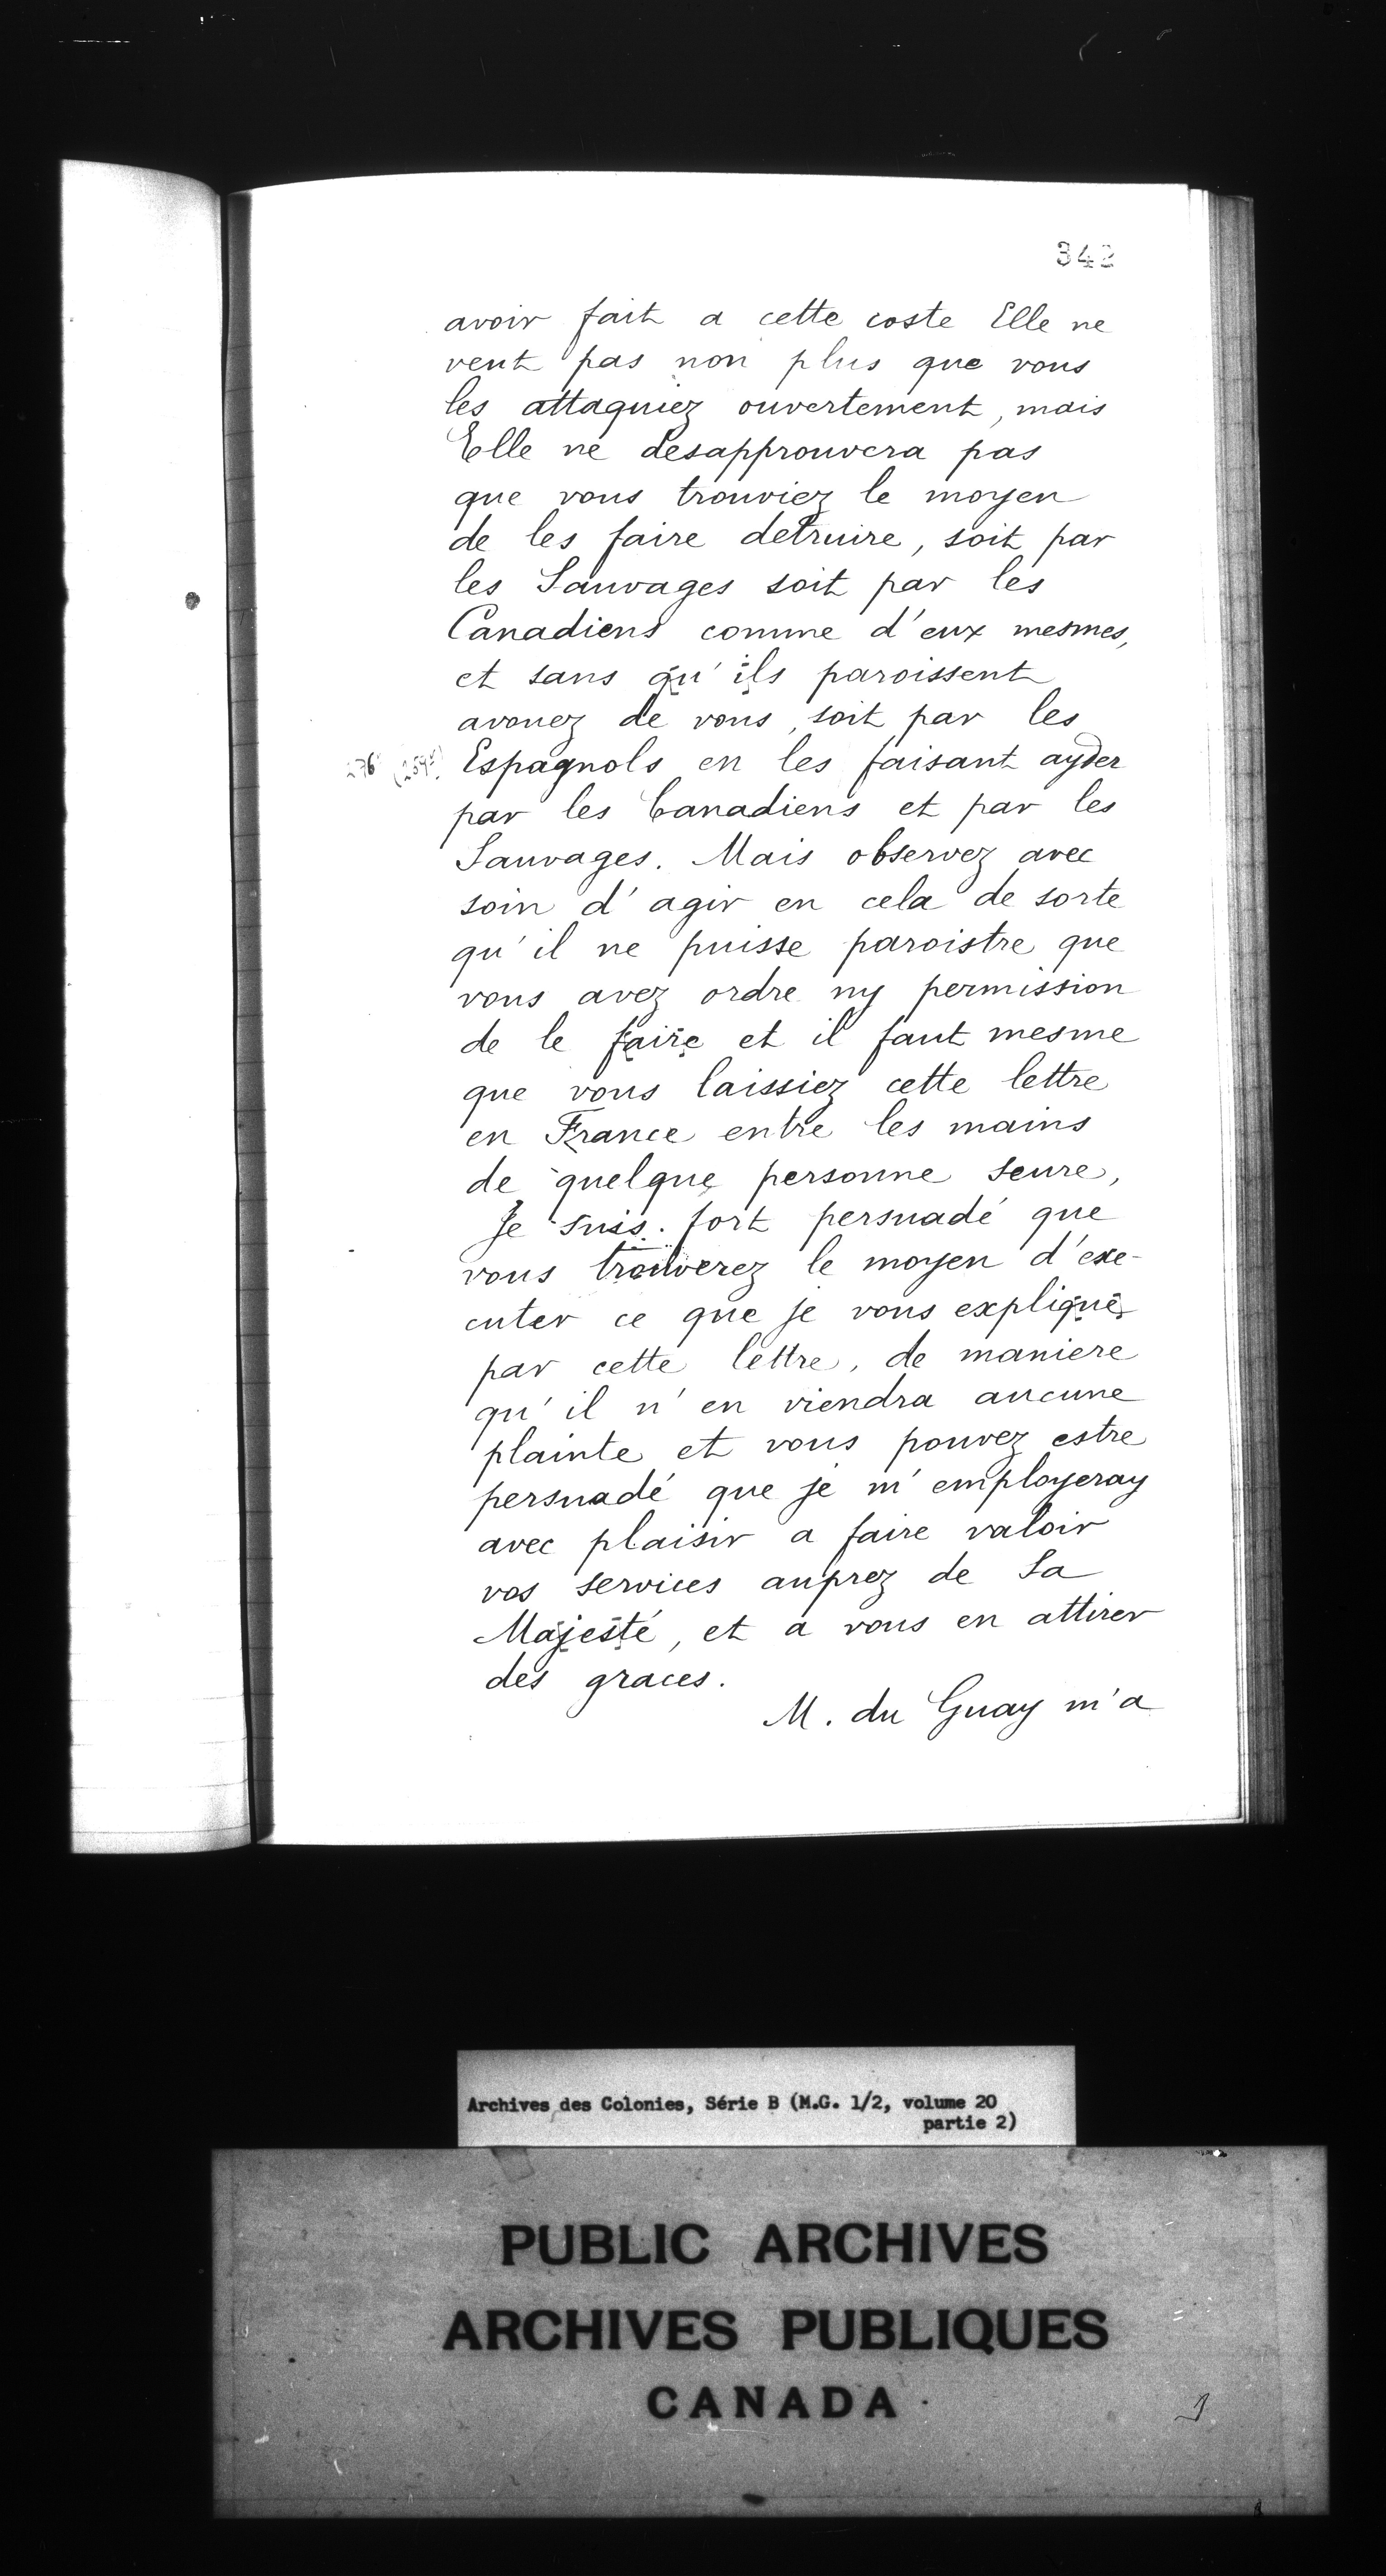 342
avoir fait a cette coste Elle ne
veut pas non plus que vous
les attaquiez ouvertement, mais
Elle ne desapprouvera pas
que vous trouviez le moyen
de les faire detruire, soit par
les Sauvages soit par les
Canadiens comme d'eux mesmes,
et sans qu'ils paroissent
avouez de vous, soit par les
Espagnols en les faisant ayder
par les Canadiens et par les
Sauvages. Mais observez avec
soin d'agir en cela de sorte
qu'il ne puisse paroistre que
vous avez ordre ny permission
de le faire et il faut mesme
que vous laissiez cette lettre
en France entre les mains
de quelque personne seure,
Je suis fort persuadé que
vous trouverez le moyen d'exe-
cuter ce que je vous explique
par cette lettre, de maniere
qu'il n'en viendra aucune
plainte et vous pouvez estre
persuadé que je m'employeray
avec plaisir a faire valoir
vos services auprez de Sa
Majesté, et a vous en attirer
des graces.
M. du Guay m'a
Archives des Colonies, Série B (M.G. 1/2, volume 20
partie 2)
PUBLIC ARCHIVES
ARCHIVES PUBLIQUES
CANADA